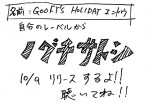 名前：GOOFY'S HOLIDAY エンドウ
自分のレーベルから
ノグチサトシ
10/9 リリースするよ!!
聴いてね!!